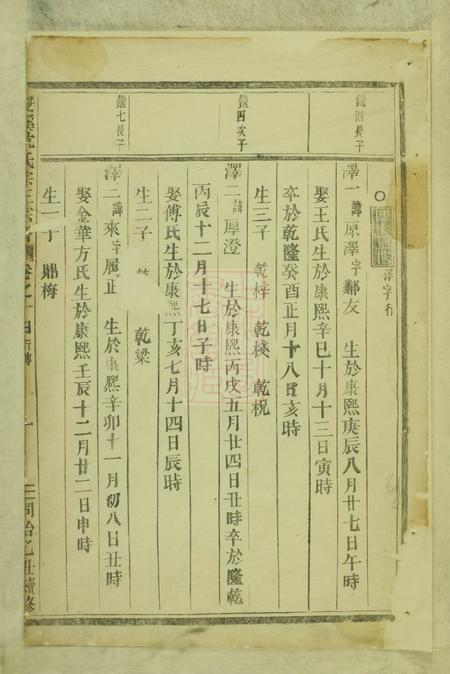 澤字行
鐵四長子
澤一諱原澤字鄰友 生於康熙庚辰八月廿七日午時
娶王氏生於康熙辛巳十月十三日寅時
卒於乾隆癸酉正月十八日亥時
生三子 乾梓 乾棧 乾祝
鐵四次子
澤二諱厚澄 生於康熙丙戌五月廿四日丑時卒於隆乾
丙辰十二月十七日子時
娶傅氏生於康熙丁亥七月十四日辰時
生二子 乾 乾梁
鐵七長子
澤三諱來字履正 生於康熙辛卯十一月初八日丑時
娶金華方氏生於康熙壬辰十二月廿二日申時
生一子 鼎梅
雙溪 氏宗 卷之十四 行傳
同治乙丑續修